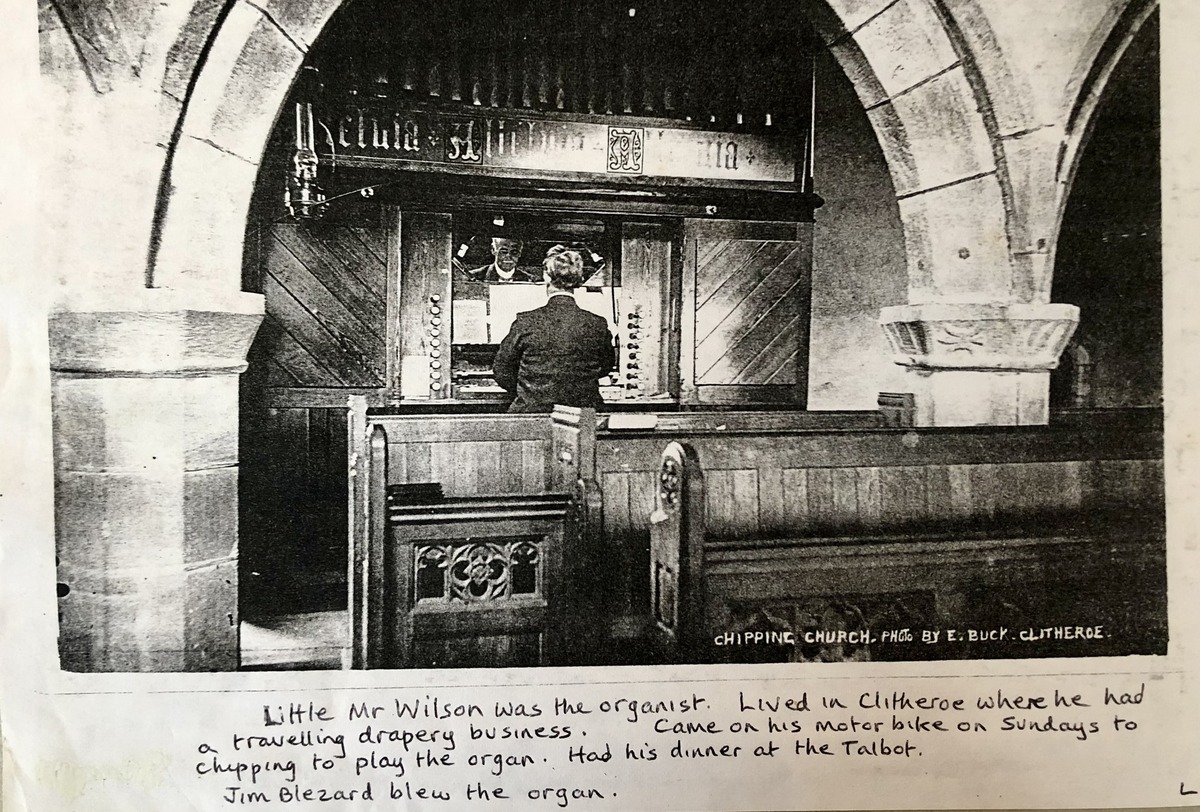 Alleluia
CHIPPING CHURCH. PHOTO BY E. BUCK. CLITHEROE.
Little Mr Wilson was the organist. Lived in Clitheroe where he had
a travelling drapery business. Came on his motor bike on Sundays to
Chipping to play the organ. Had his dinner at the Talbot.
Jim Blezard blew the organ.
L